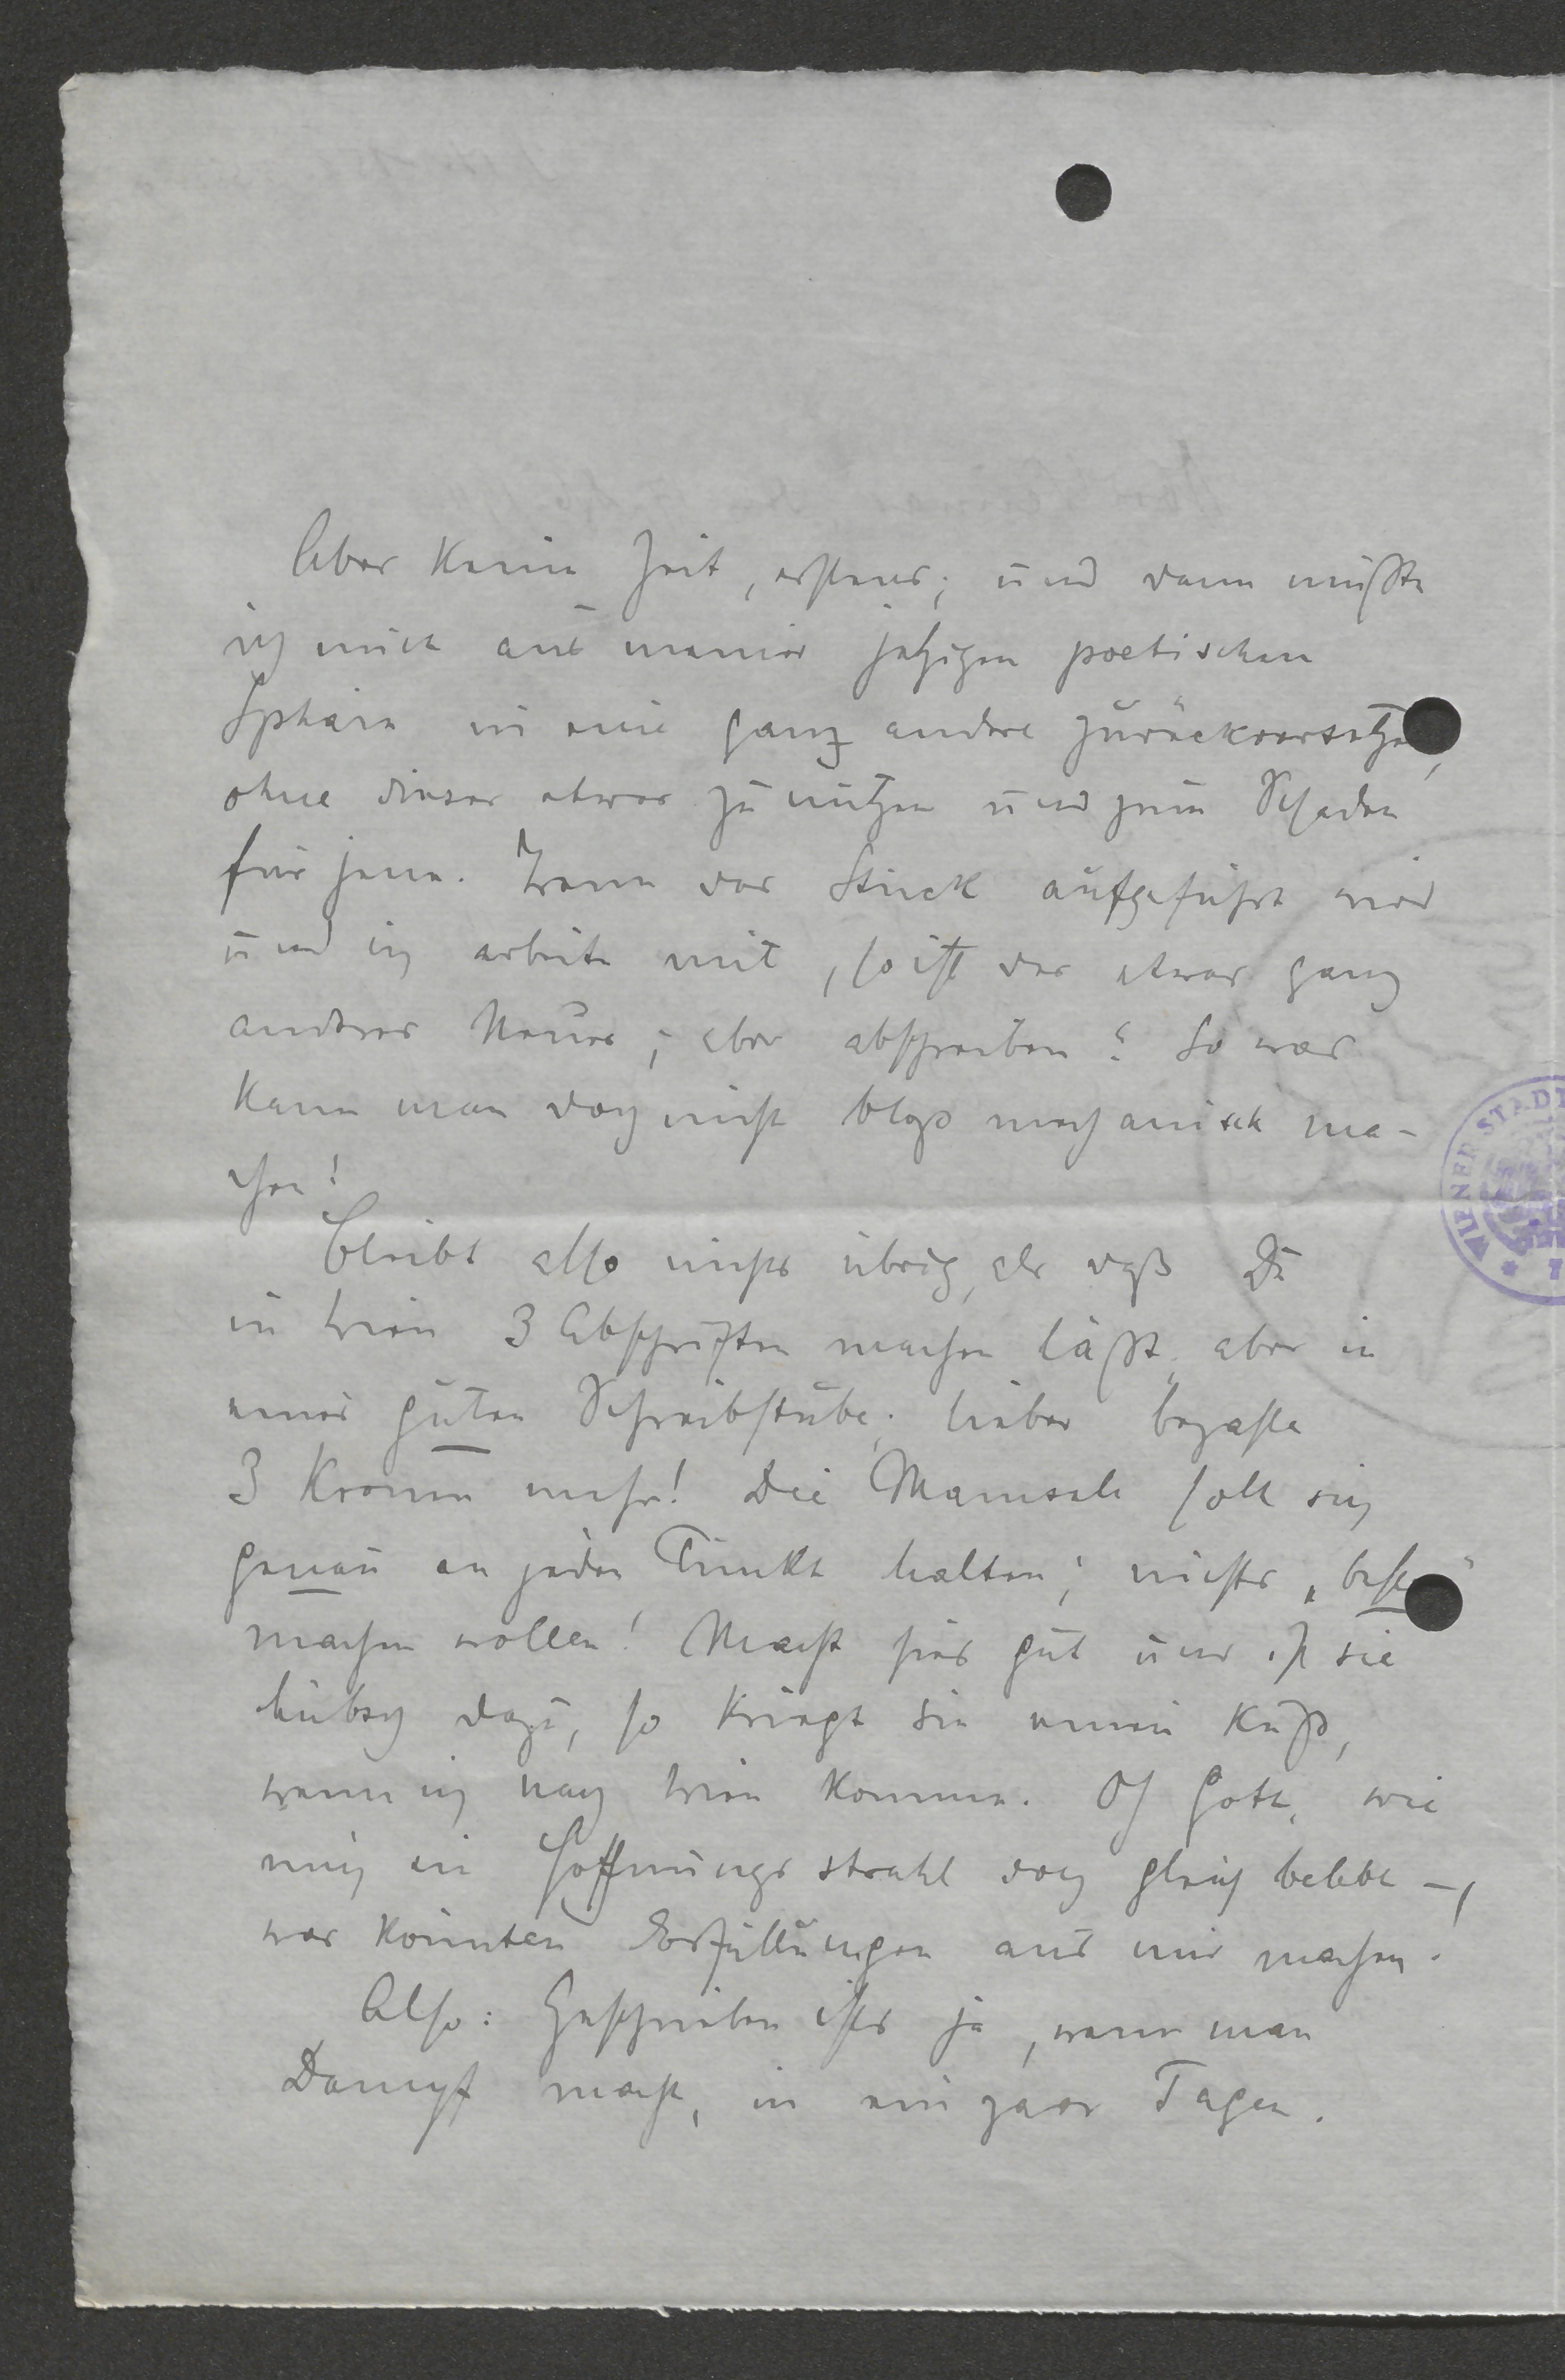 Aber keine Zeit, erstens; und dann müßte
ich mich aus meiner jetzigen poetischen
Sphäre in eine ganz andere zurückversetze
ohne dieser etwas zu nützen und zum Schaden
für jene. Wenn das Stück aufgeführt wird
und ich arbeite mit, so ist das etwas ganz
anderes Neues; aber abschreiben? So was
kann man doch nicht blos mechanisch ma-
chen!
Bleibt also nichts übrig, als daß Du
in Wien 3 Abschriften machen läßt, aber in
einer guten Schreibstube; lieber bezahle
3 Kronen mehr! Die Mamsell soll sich
genau an jeden Punkt halten; nichts „besse"
machen wollen! Macht sies gut und ist sie
hübsch dazu, so kriegt sie einen Kuß,
wenn ich nach Wien komme. Oh Gott, wie
mich ein Hoffnungsstrahl doch gleich belebt –,
was könnten Erfüllungen aus mir machen.
Also: Geschrieben ists ja, wenn man
Dampf macht, in ein paar Tagen.
WIENER STADT